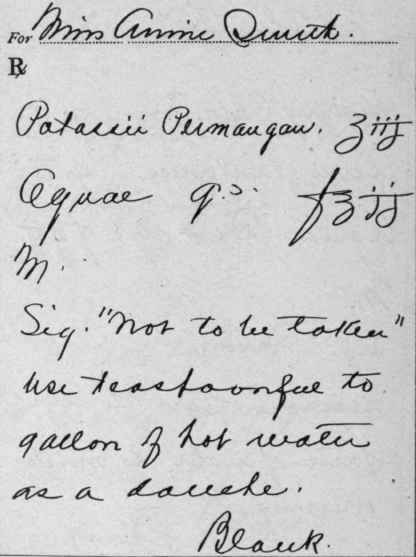 For Miss Annie Smith.
℞
Potassii Permangan. ʒiij
Aquae q.s. f℥ij
M.
Sig. "Not to be taken"
use teaspoonful to
gallon of hot water
as a douche.
Blank.